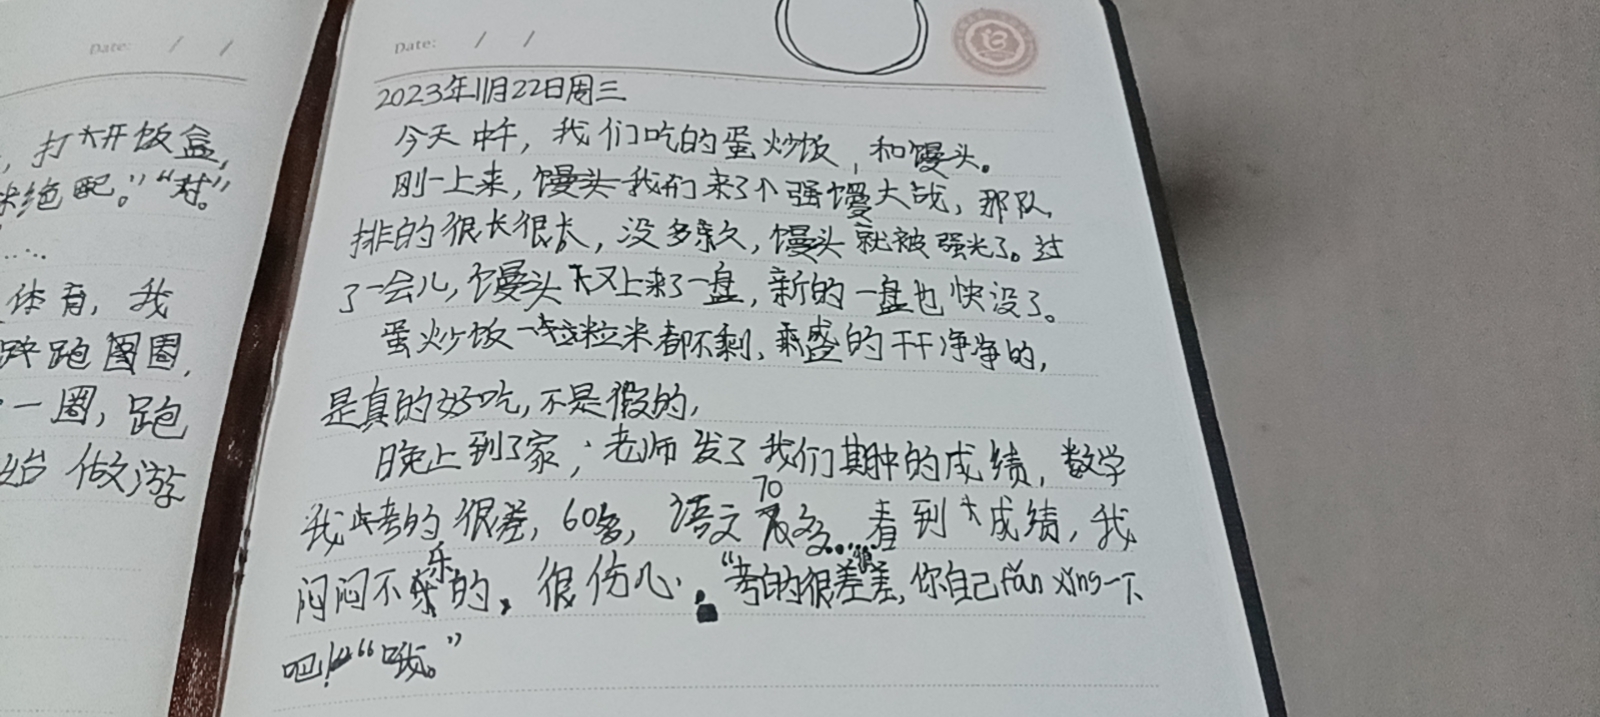 Date: / /
，打开饭盒，
绝配。”“对。”
……
体育，我
跑圈圈，
一圈，跑
始做游
Date: / /
2023年11月22日周三
今天中午，我们吃的蛋炒饭，和馒头。
刚一上来，馒头我们来了个强馒大战，那队
排的很长很长，没多久，馒头就被强光了。过
了一会儿，馒头又上来了一盘，新的一盘也快没了。
蛋炒饭一粒米都不剩，盛的干干净净的，
是真的好吃，不是假的，
晚上到了家，老师发了我们期中的成绩，数学
我考的很差，60多，语文70多……看到成绩，我
闷闷不乐的，很伤心。“考的很差很差，你自己fǎn xǐng一下
吧！”“哦。”